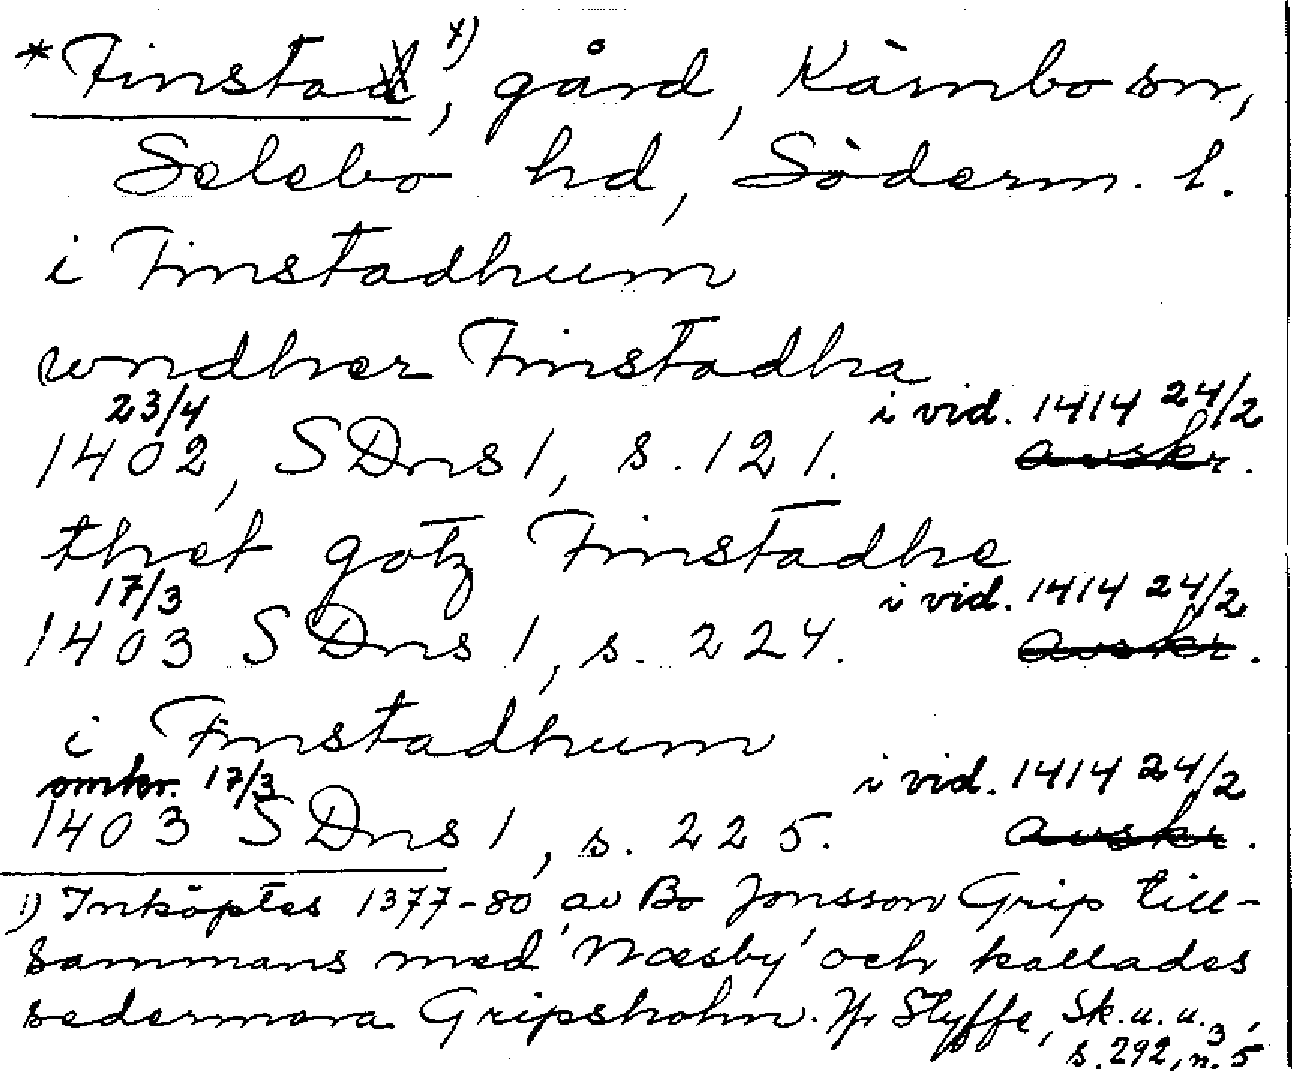 *Finstad 1), gård, Kärnbo sn,
Selebo hd, Söderm. l.
i Finstadhum
wndher Finstadha
23/4 i vid. 1414 24/2
1402, SDns 1, s. 121. avskr.
thet gotz Finstadhe
17/3 i vid. 1414 24/2
1403 SDns 1, s. 224. avskr.
i Finstadhum
omkr. 17/3 i vid. 1414 24/2
1403 SDns 1, s. 225. avskr.
1) Inköptes 1377-80 av Bo Jonsson Grip till-
sammans med 'Næsby' och kallades
sedermera Gripsholm. Jfr Styffe, Sk.u.u.3,
s. 292, n. 5